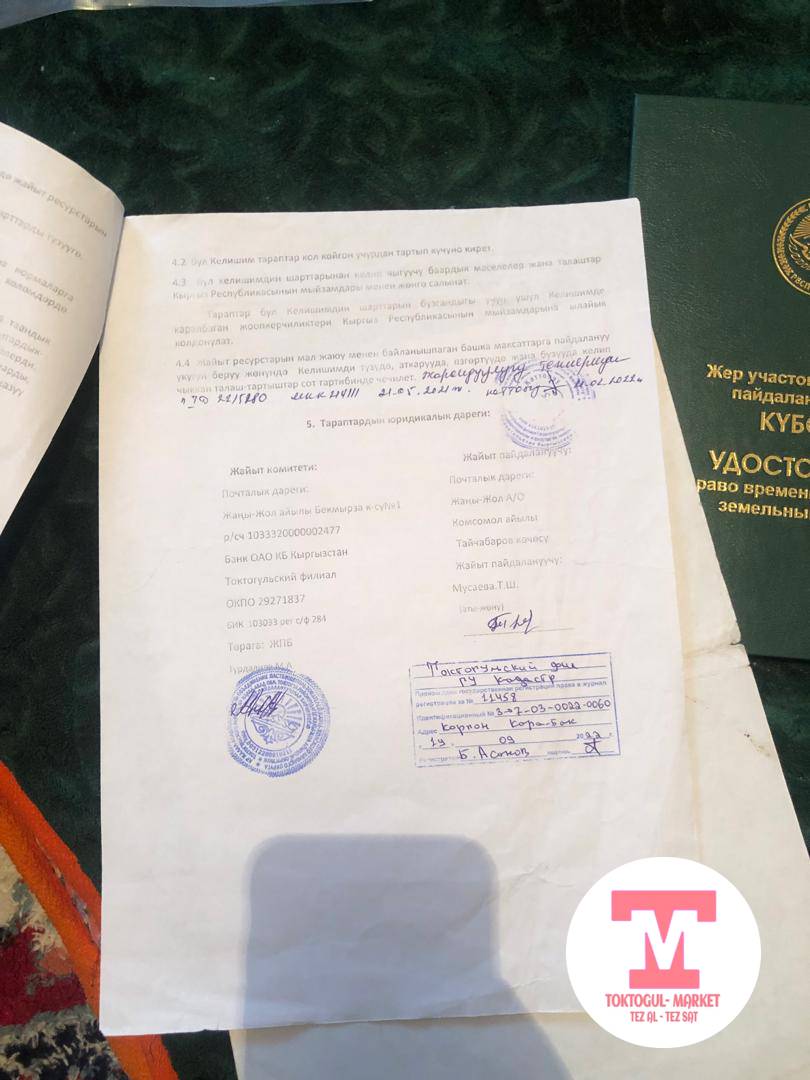 де жайыт ресурстарын
шарттарды түзүүгө.
нормаларга
көлөмдөрдө
таандык
4.2 Бул Келишим тараптар кол койгон учурдан тартып күчүнө кирет.
4.3 Бул келишимдин шарттарынан келип чыгуучу баардык маселелер жана талаштар
Кыргыз Республикасынын мыйзамдары менен жөнгө салынат.
Тараптар бул Келишимдин шарттарын бузгандыгы үчүн ушул Келишимде
каралбаган жоопкерчиликтери Кыргыз Республикасынын мыйзамдарына ылайык
колдонулат.
4.4 Жайыт ресурстарын мал жаюу менен байланышпаган башка максаттарга пайдалануу
укугун берүү жөнүндө Келишимди түзүүдө, аткарууда, өзгөртүүдө жана бузууда келип
чыккан талаш-тартыштар сот тартибинде чечилет.
22/5280 21.05.2021ж. 11.02.2022ж
5. Тараптардын юридикалык дареги:
Жайыт комитети:
Почталык дареги:
Жаңы-Жол айылы Бекмырза к-сү№1
р/сч 1033320000002477
Банк ОАО КБ Кыргызстан
Токтогульский филиал
ОКПО 29271837
БИК 103033 рег с/ф 284
Төрага: ЖПБ
Жайыт пайдалануучу:
Почталык дареги:
Жаңы-Жол А/О
Комсомол айылы
Тайчабаров көчөсү
Жайыт пайдалануучу:
Мусаева.Т.Ш.
(аты-жөнү)
Токтогулский фил
ГУ Кадастр
Произведена государственная регистрация права в журнал
регистрации за № 11458
Идентификационный № 3-07-03-0022-0060
Адрес Корпон Кара-Бок
" 19 " 09 2022 г.
Регистратор Б. Асанов подпись
Жер участо
пайдалан
КҮБӨ
УДОСТО
раво времен
земельны
TM
TOKTOGUL- MARKET
TEZ AL - TEZ SAT